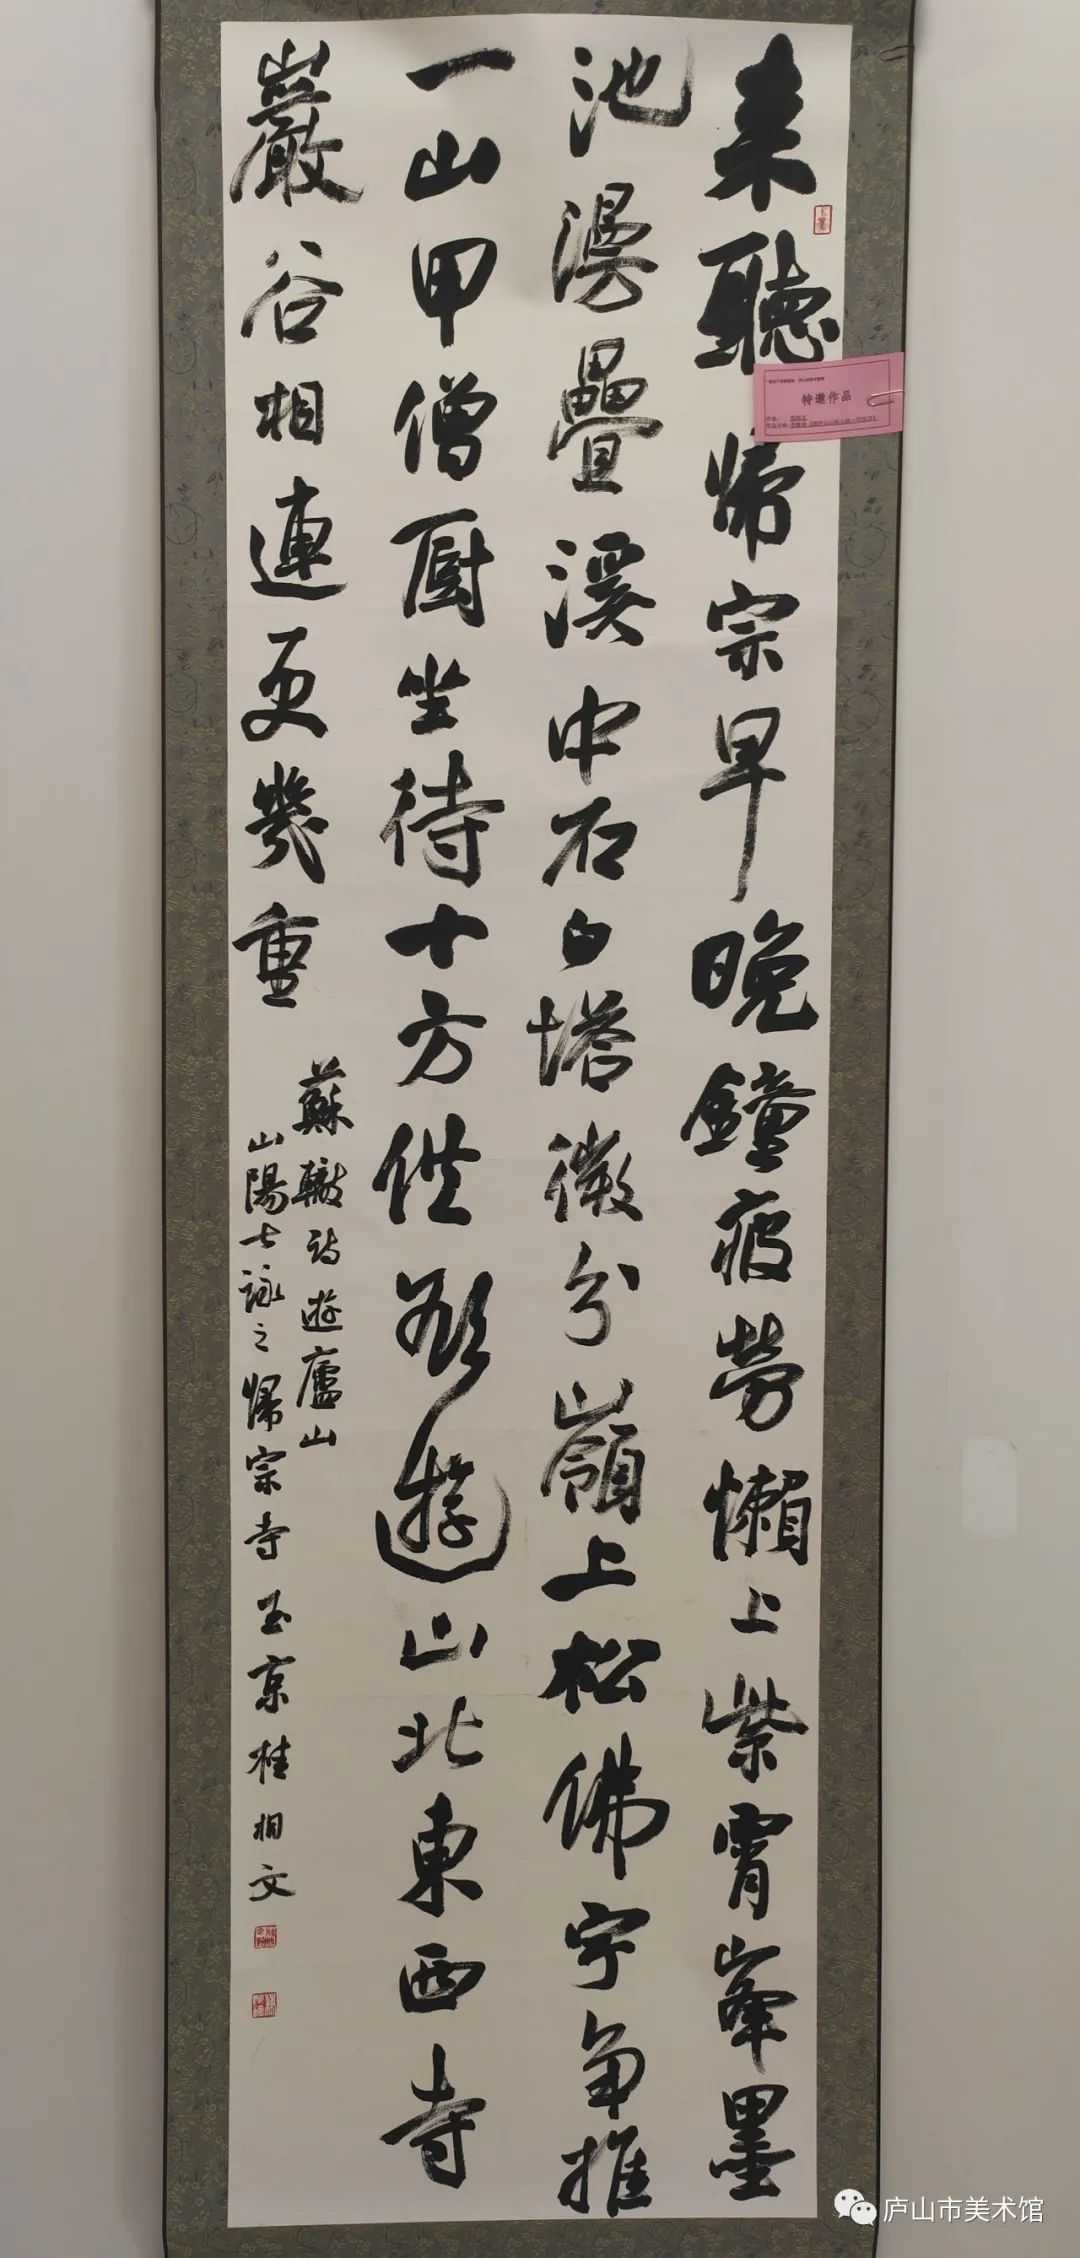 来聽歸宗早晚鐘疲勞懶上紫霄峯墨
池漫疊溪中石白塔微分嶺上松佛宇爭推
一山甲僧厨坐待十方供欲遊山北東西寺
巖谷相連更幾重
蘇轍詩遊廬山
山陽七詠之歸宗寺玉京桂相文
特邀作品
庐山市美术馆